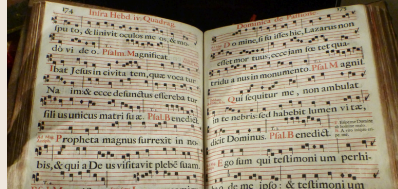 174 Infra Hebd. iv. Quadrag.
sputo, & linivit oculos meos, & mo-
do video. Psalm. Magnificat.
Ibat Jesus in civitatem, quæ vocatur
Naim & ecce defunctus efferebatur
filius unicus matri suæ. Psal. Benedict.
Propheta magnus surrexit in no-
bis, & quia Deus visitavit plebem suam.
Dominica de Passione
Domine, si fuisses hic, Lazarus non
esset mortuus, ecce jam fœtet qua-
triduanus in monumento. Psal. Magnif.
Qui sequitur me, non ambulat
in tenebris: sed habebit lumen vitæ,
dicit Dominus. Psal. Benedict.
Ego sum qui testimonium perhi-
beo de me ipso: & testimonium